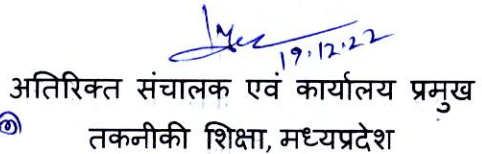 19.12.22
अतिरिक्त संचालक एवं कार्यालय प्रमुख
तकनीकी शिक्षा, मध्यप्रदेश